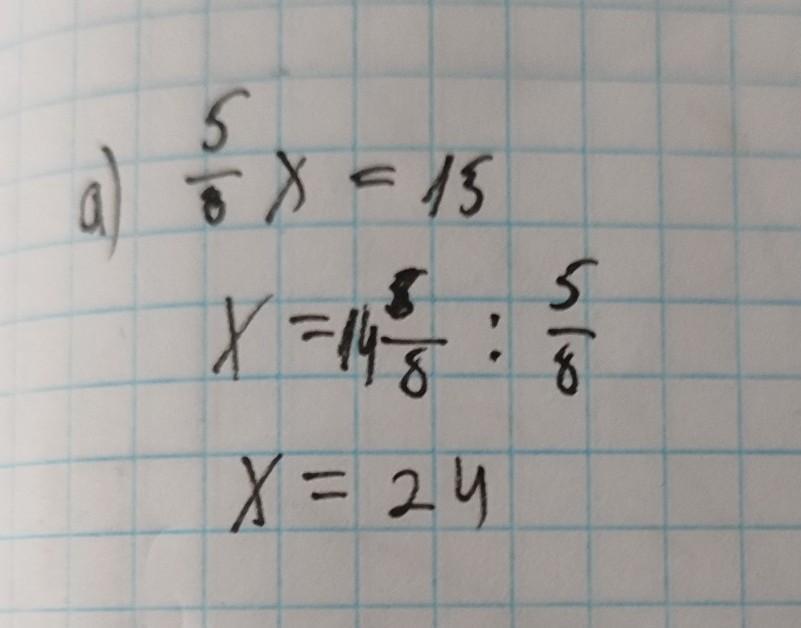 а) 5/8 x = 15
x = 14 8/8 : 5/8
x = 24